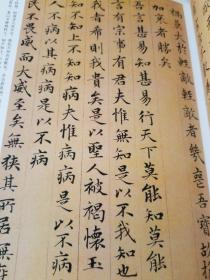 禍莫大於輕敵輕敵者幾喪吾寶故
加哀者勝矣
吾言甚易知甚易行天下莫能知莫能
言有宗事有君夫惟無知是以不我知也
我者希則我貴矣是以聖人被褐懷玉
知不知上不知知病夫惟病病是以不病
人不病以其病病是以不病
民不畏威而大威至矣無狹其所居無